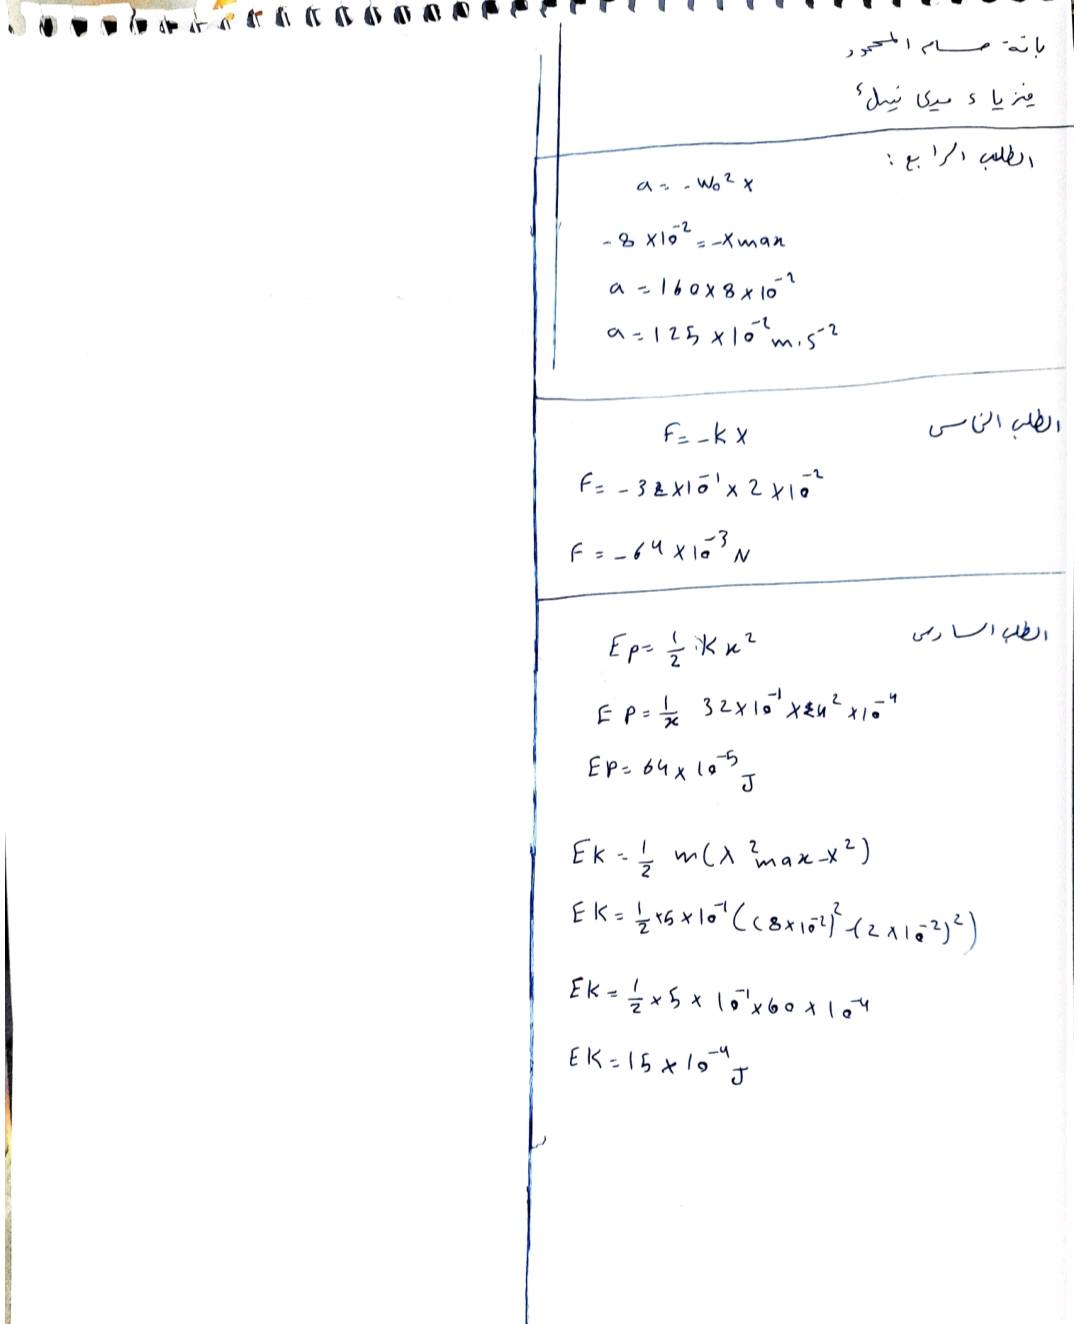 بانة حسام المحمود
فيزياء ميدي نيل
الطلب الرابع :
a = - W₀² x
- 8 × 10⁻² = - X max
a = 160 × 8 × 10⁻²
a = 125 × 10⁻² m.s⁻²
الطلب الخامس
F = - k x
F = - 32 × 10⁻¹ × 2 × 10⁻²
F = - 64 × 10⁻³ N
الطلب السادس
Ep = 1/2 k x²
EP = 1/2 32 × 10⁻¹ × 4² × 10⁻⁴
EP = 64 × 10⁻⁵ J
EK = 1/2 m (x² max - x²)
EK = 1/2 × 5 × 10⁻¹ ((8 × 10⁻²)² - (2 × 10⁻²)²)
EK = 1/2 × 5 × 10⁻¹ × 60 × 10⁻⁴
EK = 15 × 10⁻⁴ J